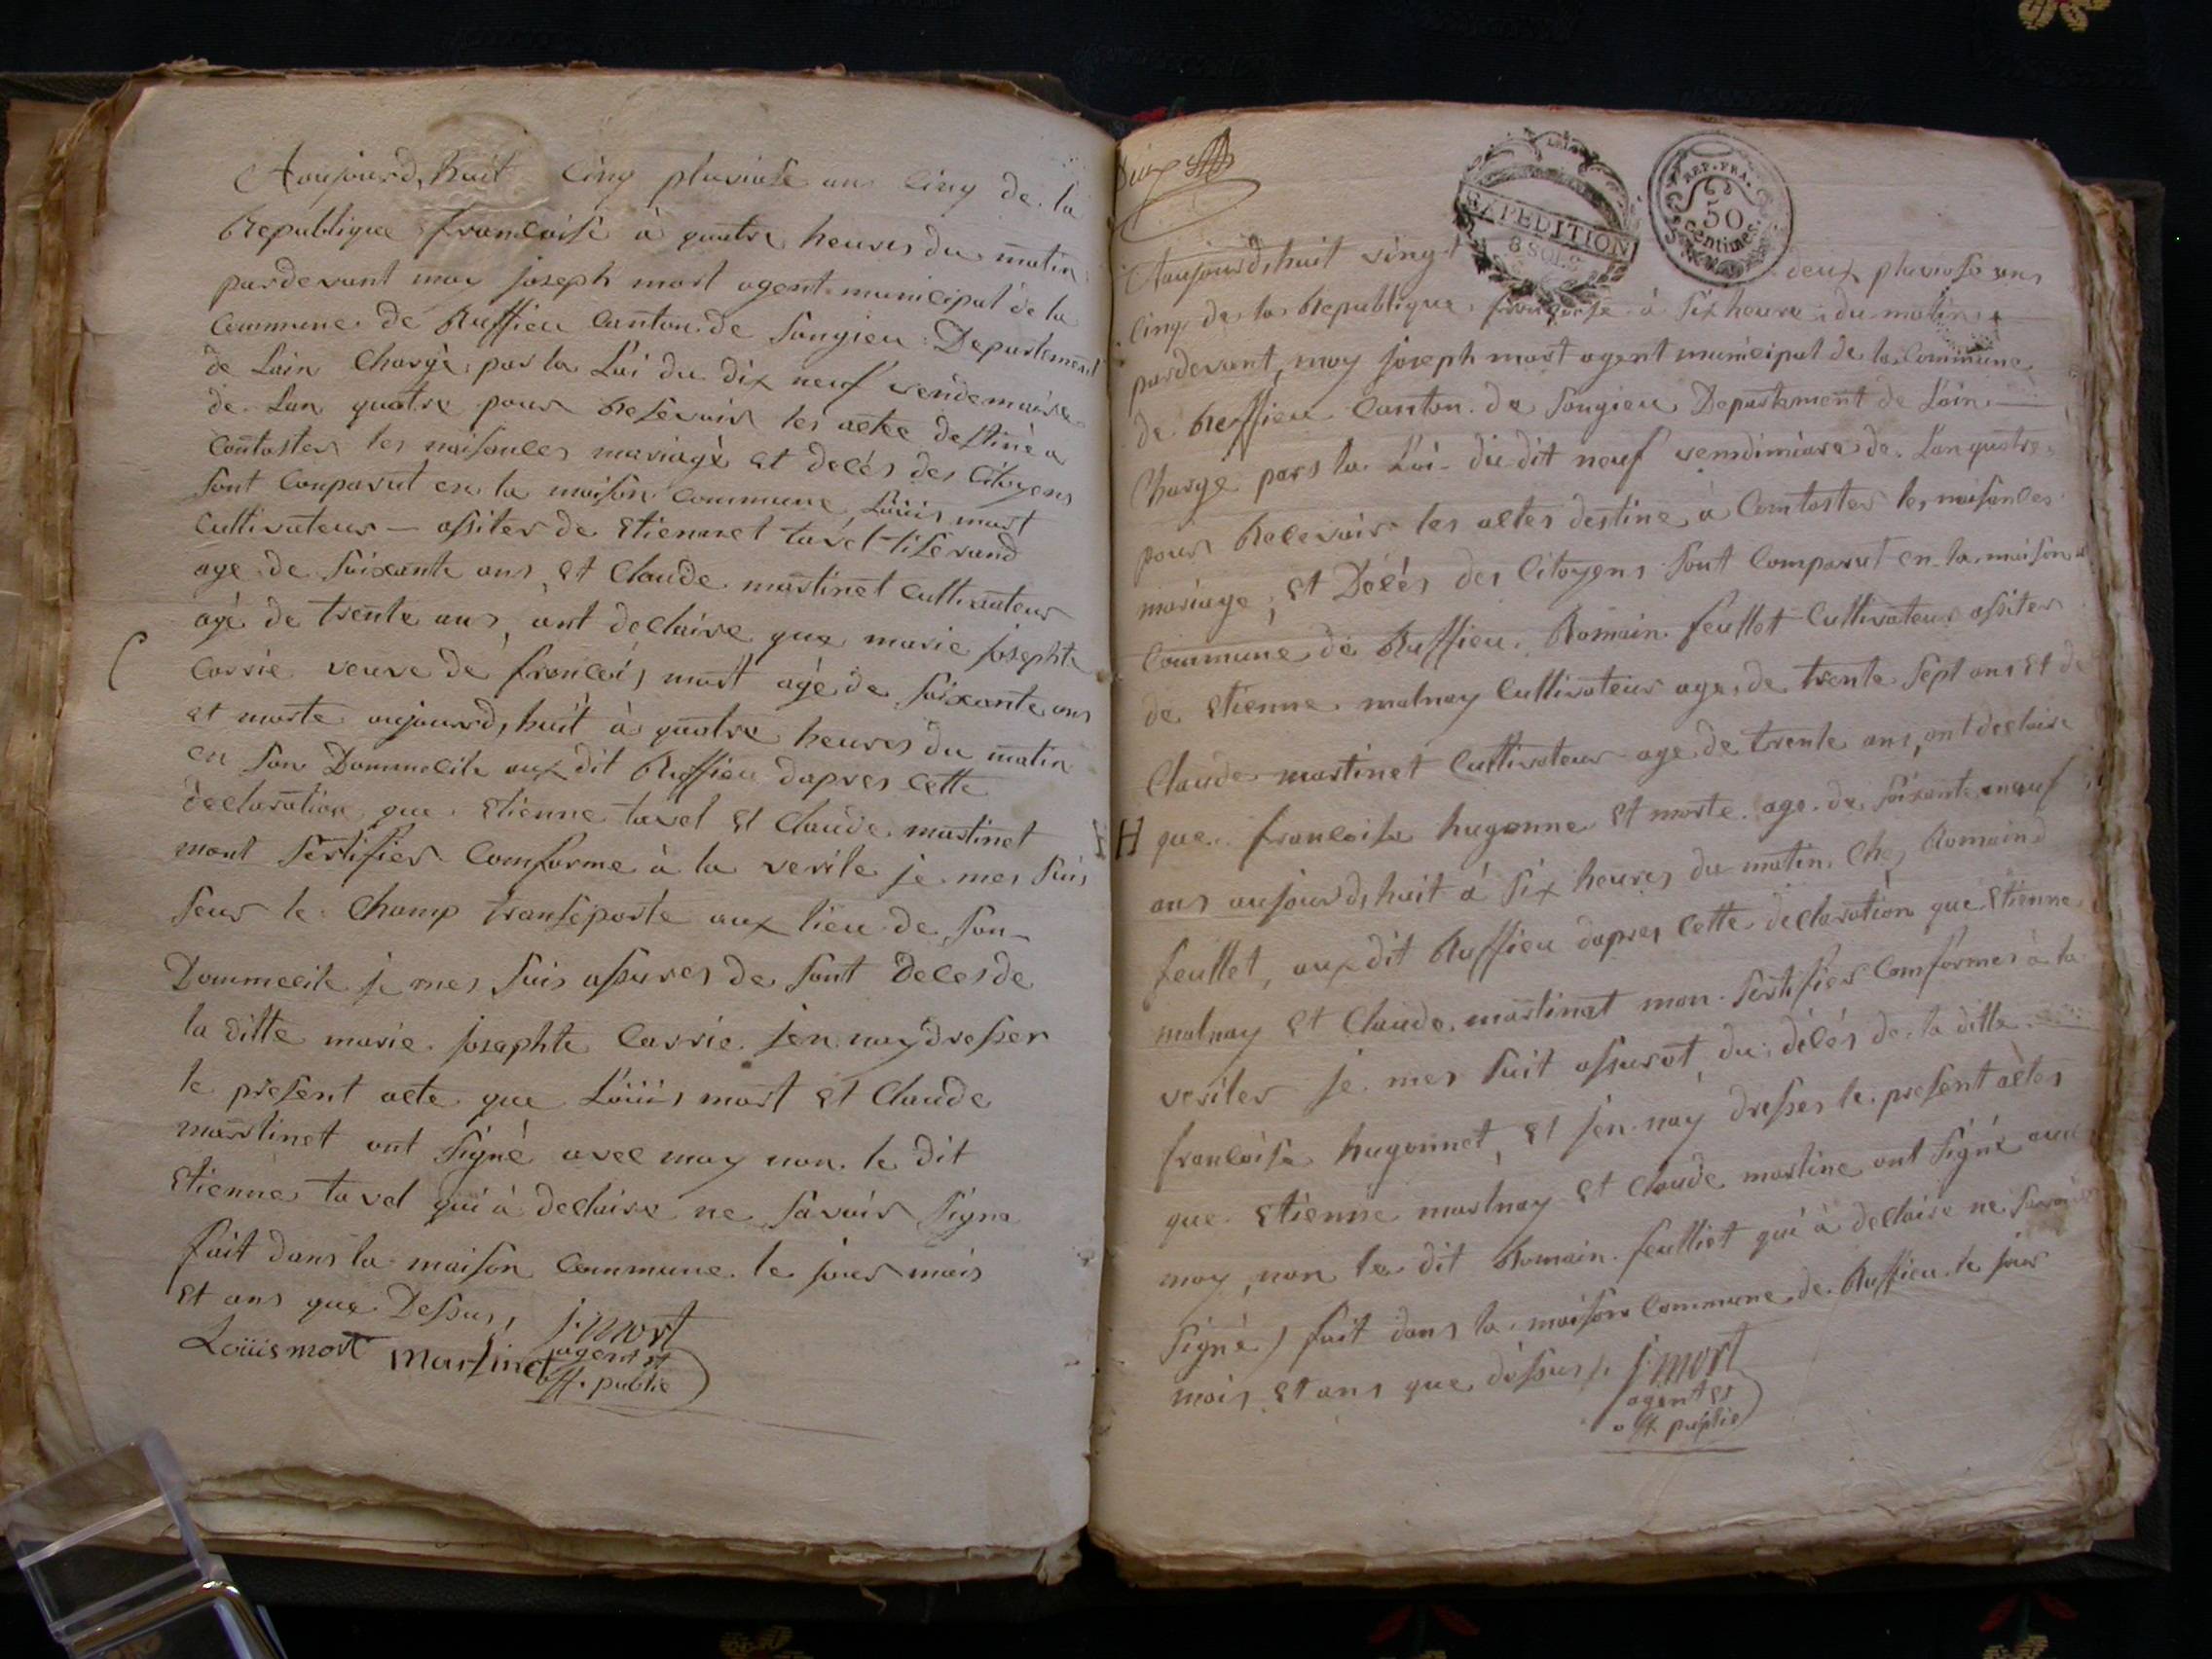 Aoujourd,huit cinq pluviose ans cinq de la
Republique francoise à quatre heures du matin
pardevant moy joseph mort agent municipal de la
Commune de Ruffieu Canton de Songieu Departement
de Lain Chargè par la Loi du dix neuf vendemaire
de Lan quatre pour Resevoir les actee destinè a
Contaster les naisances mariagè et decés des Citoyens
sont Conparut en la maison Commune Loüis mort
Cultivateur – assiter de Etiennet tavel tiserand
age de soixante ans et Claude martinet Cultivateur
agè de trente ans, ont declaire que marie josephte
C Carrie veuve de francois mort agè de soixante ans
et morte aujourd,huit à quatre heures du matin
en son Dommecile aux dit Ruffieu dapres cette
declaration que Etienne tavel et Claude martinet
mont sertifier Comforme à la verite je mes suis
seur le Champ transeporte aux lieu de son
Dommecile je mes suis assurer de sont Deces de
la ditte marie josephte Carrie jen nay dresser
le present acte que Loüis mort et Claude
martinet ont signè avec moy non le dit
Etienne tavel qui à declaire ne savoir signe
fait dans la maison Commune le jour mois
et ans que Dessus, j. mort
Loüis mort martinet agent et
off. public
EXPEDITION
8 SOLS
REP. FRA.
50
centimes.
Aoujourd,huit vingt deux pluviose ans
cinq de la Republique francoise à six heure du matin
pardevant, moy joseph mort agent municipal de la Commune
de Reffieu Canton de Songieu Departement de Lain
Chargè pars la Loi du dit neuf vendimiare de Lan quatre
pour Recevoir les actes destinè a Contaster les naisances
mariage, et Décés des Citoyens sont Comparut en la maison
Commune de Ruffieu, Romain feullet Cultivateur assiter
de Etienne malnay Cultivateur age de trente sept ans et de
Claude martinet Cultivateur age de trente ans, ont declaire
H que francoise hugonne et morte age de soixante neuf
ans aujourd,huit à six heures du matin Chez Romaind
feullet, aux dit Ruffieu dapres cette declaration que Etienne
malnay et Claude martinet mon sertifier Comformes à la
veriter je mes suit assurot du décés de la ditte
francoise hugonnet, et jen nay dresser le present actes
que Etienne martnay et Claude martine ont signè avec
moy, non le dit Romain feulliet qui à declaire ne savoir
signè) fait dans la maison Commune de Ruffieu le jour
mois et ans que dessus j. mort
agent et
off. puplic